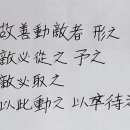 故善動敵者 形之
敵必從之 予之
敵必取之
以此動之 以卒待之